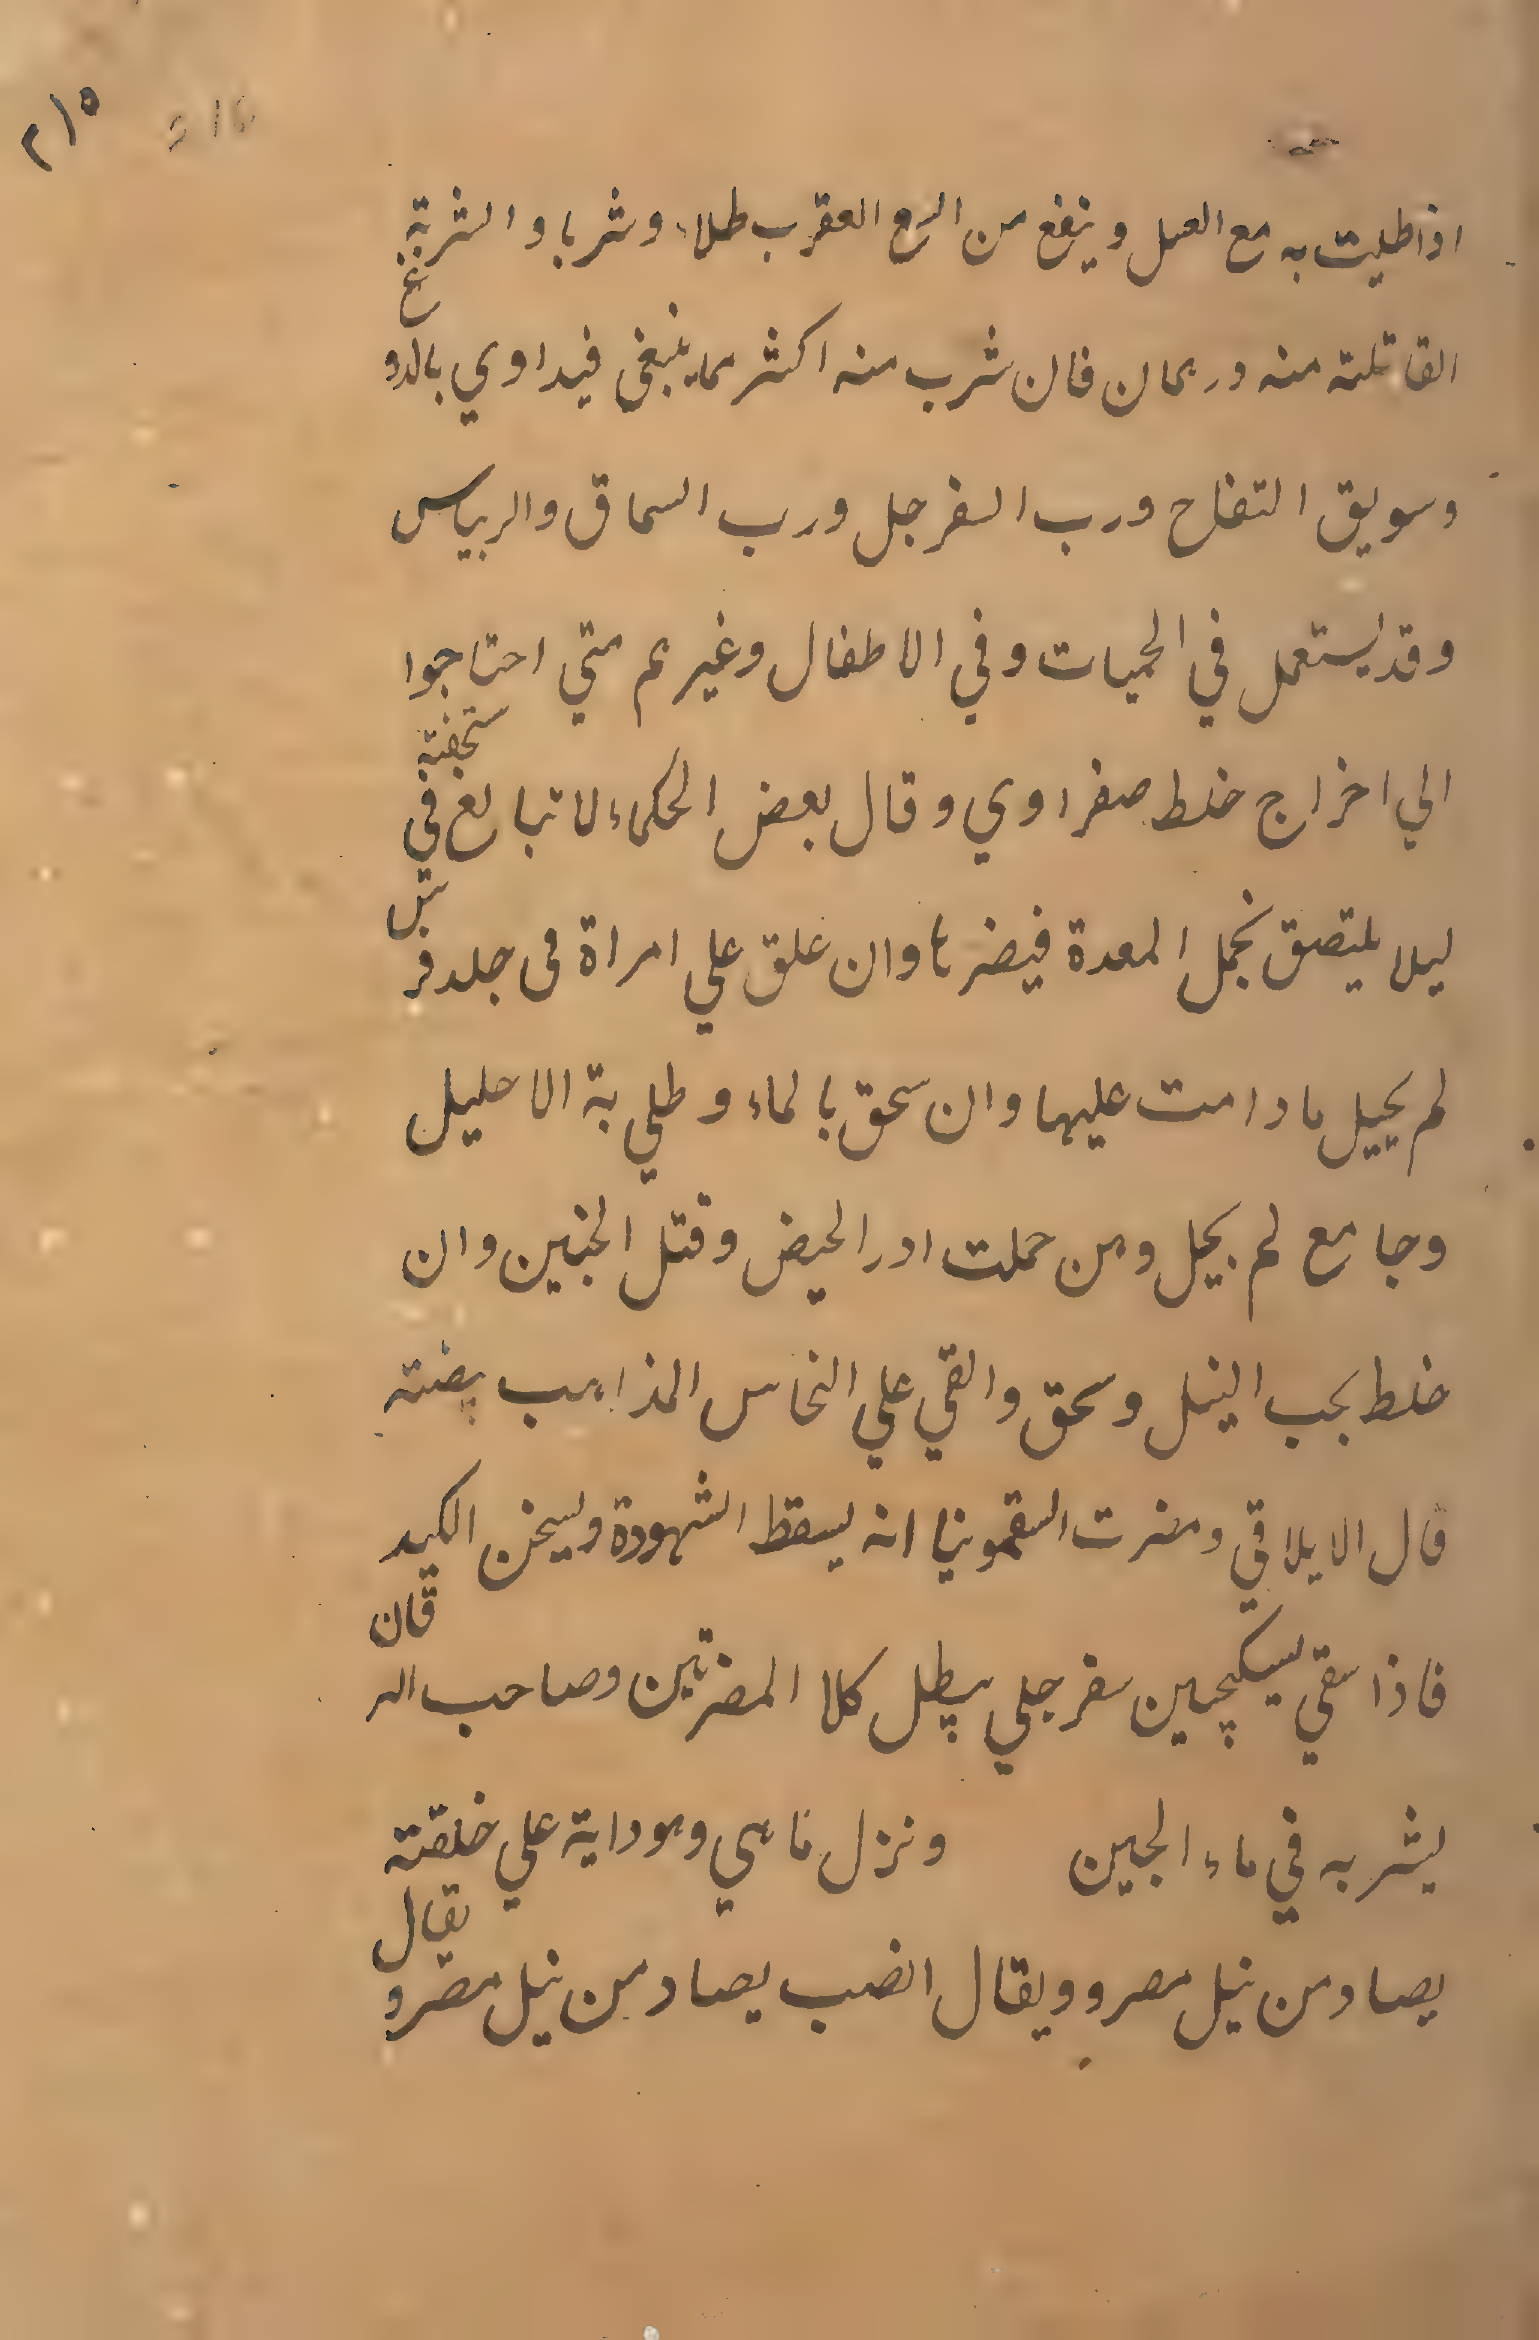 ٢١٥
اذا طليت به مع العسل وينفع من السع العقرب طلاء وشربا والشربة
القاتلته منه درهمان فان شرب منه اكثر مما ينبغى فيداوي بالدوغ
وسويق التفاح ورب السفرجل ورب السماق والريباس
وقد يستعمل في الحميات وفي الاطفال وغيرهم متي احتاجوا
الي اخراج خلط صفراوي وقال بعض الحكماء لا تبالغ في سحقته
ليلا يلتصق بخمل المعدة فيضرها وان علق علي امراة فى جلد فرس
لم يحيل ما دامت عليها وان سحق بالماء وطلي بة الاحليل
وجامع لم يحيل ومن حملت ادر الحيض وقتل الجنين وان
خلط بحب النيل وسحق والقي علي النحاس المذاهب بيضته
قال الايلاقي ومضرت السقمونيا انه يسقط الشهودة ويسخن الكبد
فاذا سقي بسكنجبين سفرجلي يبطل كلا المضرتين وصاحب اليرقان
يشربه في ماء الجبن ونزل فاسي وهو داية علي خلقته
يصاد من نيل مصر وويقال الضب يصاد من نيل مصر ويقال